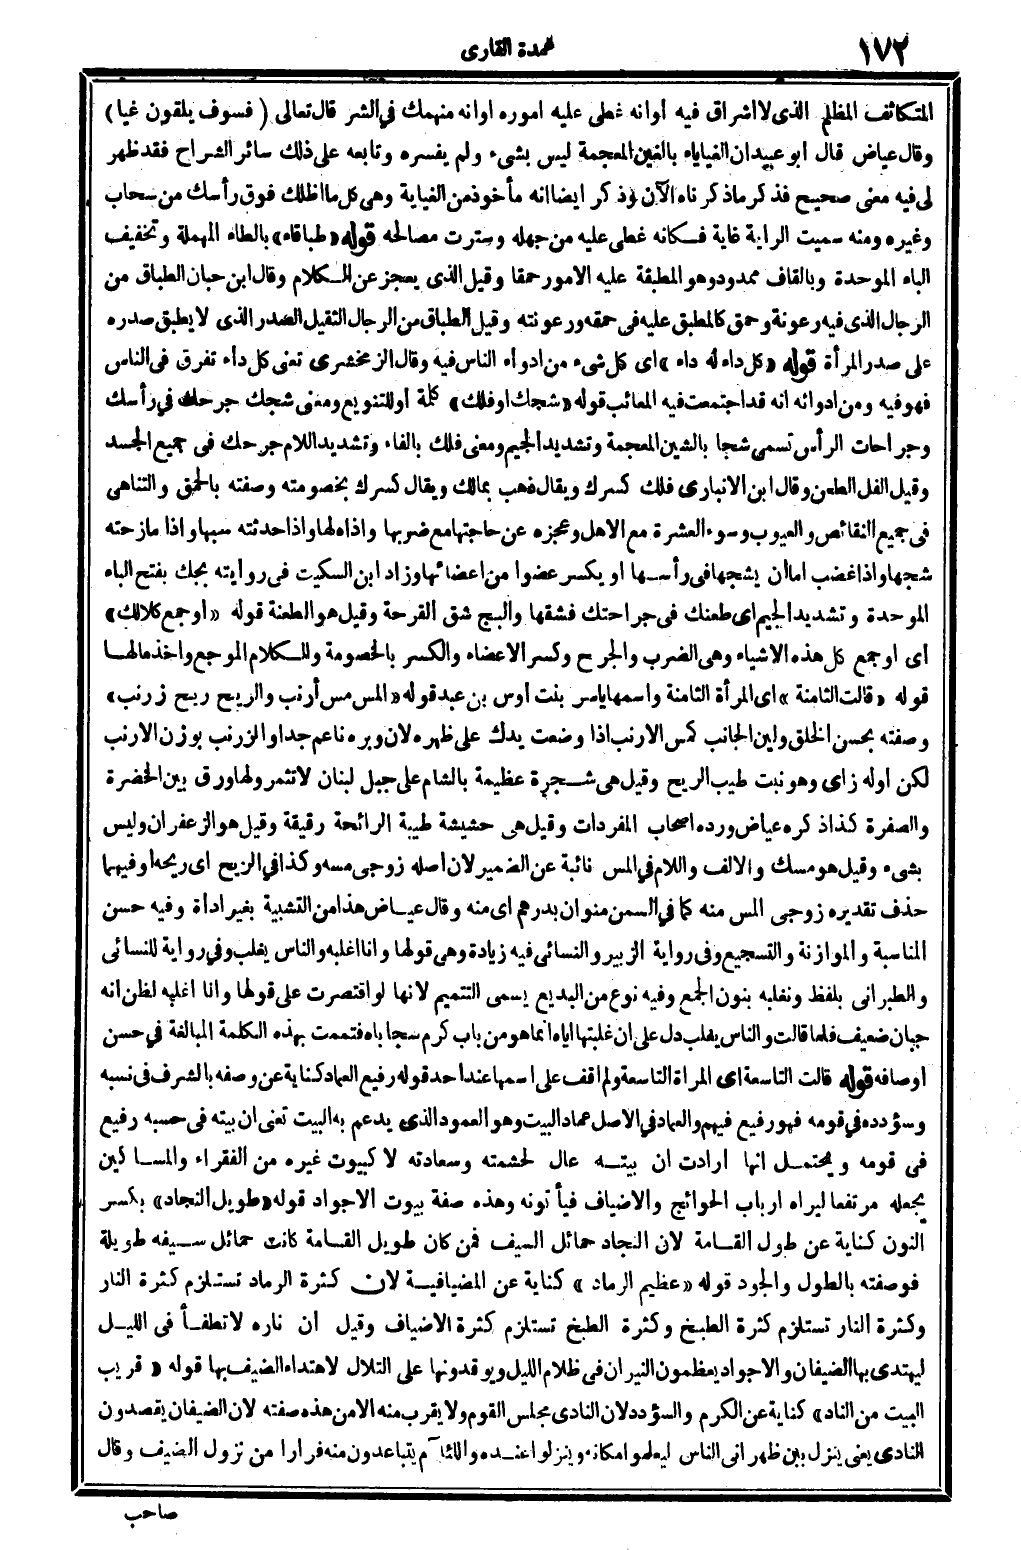 ١٧٢
عمدة القارى
المتكاثف المظلم الذى لا اشراق فيه أوانه غطى عليه اموره اوانه منهمك في الشر قال تعالى ( فسوف يلقون غيا )
وقال عياض قال ابو عبيد ان الغياياء بالغين المعجمة ليس بشىء ولم يفسره وتابعه على ذلك سائر الشراح فقد ظهر
لى فيه معنى صحيح فذكر ماذكرناه الآن وذكر ايضا انه مأخوذ من الغياية وهى كل ما اظلك فوق رأسك من سحاب
وغيره ومنه سميت الراية غاية فكانه غطى عليه من جهله وسترت مصالحه قوله «طباقاء» بالطاء المهملة وتخفيف
الباء الموحدة وبالقاف ممدود وهو المطبقة عليه الامور حمقا وقيل الذى يعجز عن الكلام وقال ابن حبان الطباق من
الرجال الذى فيه رعونة وحمق كالمطبق عليه فى حمقه ورعونته وقيل الطباق من الرجال الثقيل الصدر الذى لا يطبق صدره
على صدر المرأة قوله «كل داء له داء» اى كل شىء من ادواء الناس فيه وقال الزمخشرى تعنى كل داء تفرق فى الناس
فهو فيه ومن ادوائه انه قد اجتمعت فيه المعائب قوله «شجك او فلك» كلمة أو للتنويع ومعنى شجك جرحك في رأسك
وجراحات الرأس تسمى شجا بالشين المعجمة وتشديد الجيم ومعنى فلك بالفاء وتشديد اللام جرحك فى جميع الجسد
وقيل الفل الطعن وقال ابن الانبارى فلك كسرك ويقال ذهب بمالك ويقال كسرك بخصومته وصفته بالحمق والتناهى
فى جميع النقائص والعيوب وسوء العشرة مع الاهل وعجزه عن حاجتها مع ضربها واذاه لها واذا حدثته سبها واذا مازحته
شجها واذا غضب اما ان يشجها فى رأسها او يكسر عضوا من اعضائها وزاد ابن السكيت فى روايته بجك بفتح الباء
الموحدة وتشديد الجيم اى طعنك فى جراحتك فشقها والبج شق القرحة وقيل هو الطعنة قوله «او جمع كلالك»
اى او جمع كل هذه الاشياء وهى الضرب والجرح وكسر الاعضاء والكسر بالخصومة والكلام الموجع واخذ مالها
قوله «قالت الثامنة» اى المرأة الثامنة واسمها ياسر بنت أوس بن عبد قوله «المس مس أرنب والريح ريح زرنب»
وصفته بحسن الخلق ولين الجانب كمس الارنب اذا وضعت يدك على ظهره لان وبره ناعم جدا والزرنب بوزن الارنب
لكن اوله زاى وهو نبت طيب الريح وقيل هى شجرة عظيمة بالشام على جبل لبنان لا تثمر ولها ورق بين الخضرة
والصفرة كذا ذكره عياض ورده اصحاب المفردات وقيل هى حشيشة طيبة الرائحة رقيقة وقيل هو الزعفران وليس
بشىء وقيل هو مسك والالف واللام في المس نائبة عن الضمير لان أصله زوجى مسه وكذا في الريح اى ريحه أو فيهما
حذف تقديره زوجى المس منه كما في السمن منوان بدرهم اى منه وقال عياض هذا من التشبية بغير اداة وفيه حسن
المناسبة والموازنة والتسجيع وفى رواية الزبير والنسائى فيه زيادة وهى قولها وانا اغلبه والناس يغلب وفي رواية للنسائى
والطبرانى بلفظ ونغلبه بنون الجمع وفيه نوع من البديع يسمى التتميم لانها لو اقتصرت على قولها وانا اغلبه لظن انه
جبان ضعيف فلما قالت والناس يغلب دل على ان غلبتها اياه انما هو من باب كرم سجاياه فتممت بهذه الكلمة المبالغة في حسن
اوصافه قوله قالت التاسعة اى المرأة التاسعة ولم اقف على اسمها عند احد قوله رفيع العماد كناية عن وصفه بالشرف فى نسبه
وسؤدده فى قومه فهو رفيع فيهم والعماد في الاصل عماد البيت وهو العمود الذى يدعم به البيت تعنى ان بيته فى حسبه رفيع
فى قومه ويحتمل انها ارادت ان بيته عال لحشمته وسعادته لا كبيوت غيره من الفقراء والمساكين
يجعله مرتفعا ليراه ارباب الحوائج والاضياف فيأتونه وهذه صفة بيوت الاجواد قوله «طويل النجاد» بكسر
النون كناية عن طول القامة لان النجاد حمائل السيف فمن كان طويل القامة كانت حمائل سيفه طويلة
فوصفته بالطول والجود قوله «عظيم الرماد» كناية عن المضيافية لان كثرة الرماد تستلزم كثرة النار
وكثرة النار تستلزم كثرة الطبخ وكثرة الطبخ تستلزم كثرة الاضياف وقيل ان ناره لا تطفأ فى الليل
ليهتدى بها الضيفان والاجواد يعظمون النيران فى ظلام الليل ويوقدونها على التلال لاهتداء الضيف بها قوله «قريب
البيت من الناد» كناية عن الكرم والسؤدد لان النادى مجلس القوم ولا يقرب منه الا من هذه صفته لان الضيفان يقصدون
النادى يعنى ينزل بين ظهرانى الناس ليعلموا مكانه وينزلوا عنده واللئام يتباعدون منه فرارا من نزول الضيف وقال
صاحب